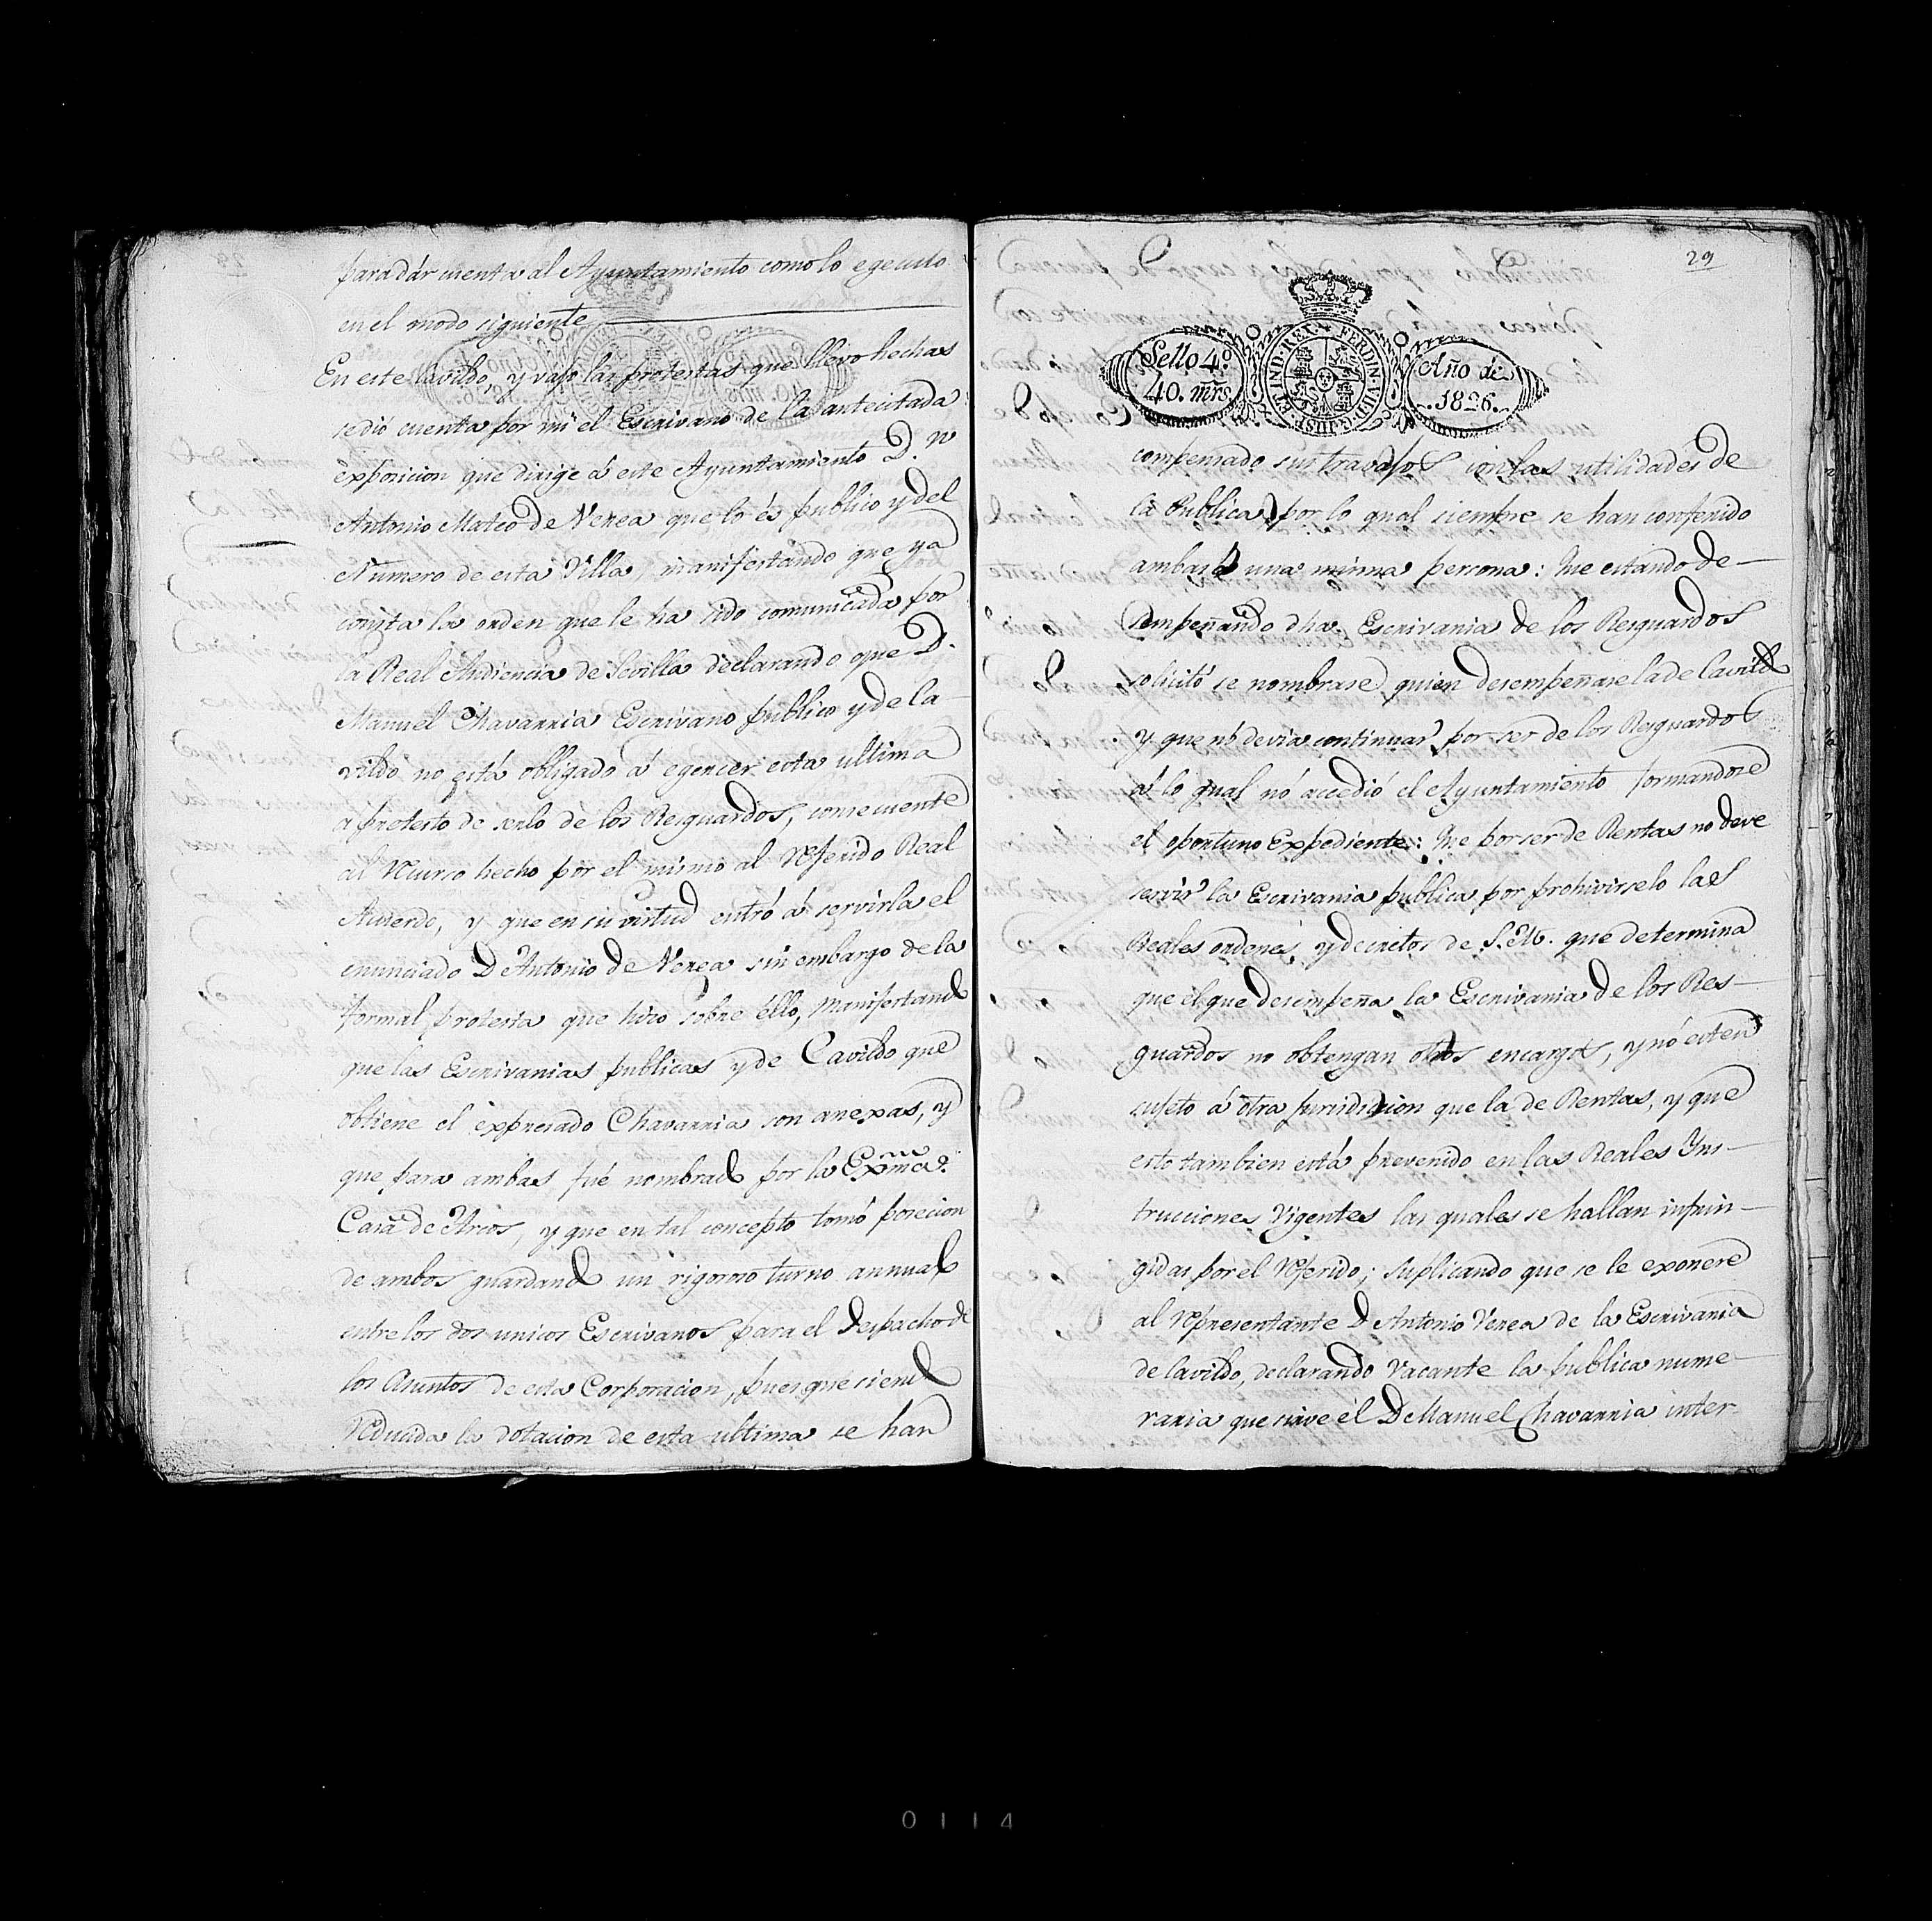 para dár cuenta al Ayuntamiento como lo egecuto
en el modo siguiente
En este Cavildo, y vajo las protestas que llevo hechas
se dió cuenta por mi el Escrivano de la antecitada
exposicion que dirige á este Ayuntamiento D.n
Antonio Mateo de Verea que lo és publico y del
Numero de esta Villa, manifestando que ya
consta la orden que le ha sido comunicada por
la Real Audiencia de Sevilla declarando que D.
Manuel Chavarria Escrivano publico y de Ca-
vildo no está obligado á egercer esta ultima
a pretesto de serlo de los Resguardos, consecuente
al Recurso hecho por el mismo al Referido Real
Acuerdo, y que en su virtud entró á servirla el
enunciado D Antonio de Verea sin embargo de la
formal protesta que hizo sobre ello, Manifestando
que las Escrivanias publicas y de Cavildo que
obtiene el expresado Chavarria son anexas, y
que para ambas fué nombrado por la Exma.
Casa de Arcos, y que en tal concepto tomó posecion
de ambos guardando un rigoroso turno annual
entre los dos unicos Escrivanos para el Despacho de
los Asuntos de esta Corporacion, pues que siendo
Reducida la dotacion de esta ultima se han
29
Sello 4.º
40. mrs.
FERDIN. VII. D. G.
ET IND. REX.
Año de
1826.
compensado sus travajos con las utilidades de
la Publica, por lo qual siempre se han conferido
ambas á una misma persona: Que estando de-
sempeñando dha. Escrivania de los Resguardos
solicitó se nombrase quien desempeñase la de Cavildo
y que nó devia continuar por ser de los Resguardos
á lo qual nó accedió el Ayuntamiento formandose
el oportuno Expediente: Que por ser de Rentas no deve
servir la Escrivania publica por prohivirselo las
Reales ordenes, y decretos de S.M. que determina
que el que desempeña la Escrivania de los Res-
guardos no obtengan otros encargos, y nó esten
sujeto á otra jurisdiccion que la de Rentas, y que
esto tambien está prevenido en las Reales Yns-
trucciones Vigentes las quales se hallan infrin-
gidas por el Referido; Suplicando que se le exonere
al Representante D Antonio Verea de la Escrivania
de Cavildo, declarando Vacante la publica nume-
raria que sirve él D Manuel Chavarria inter
0114